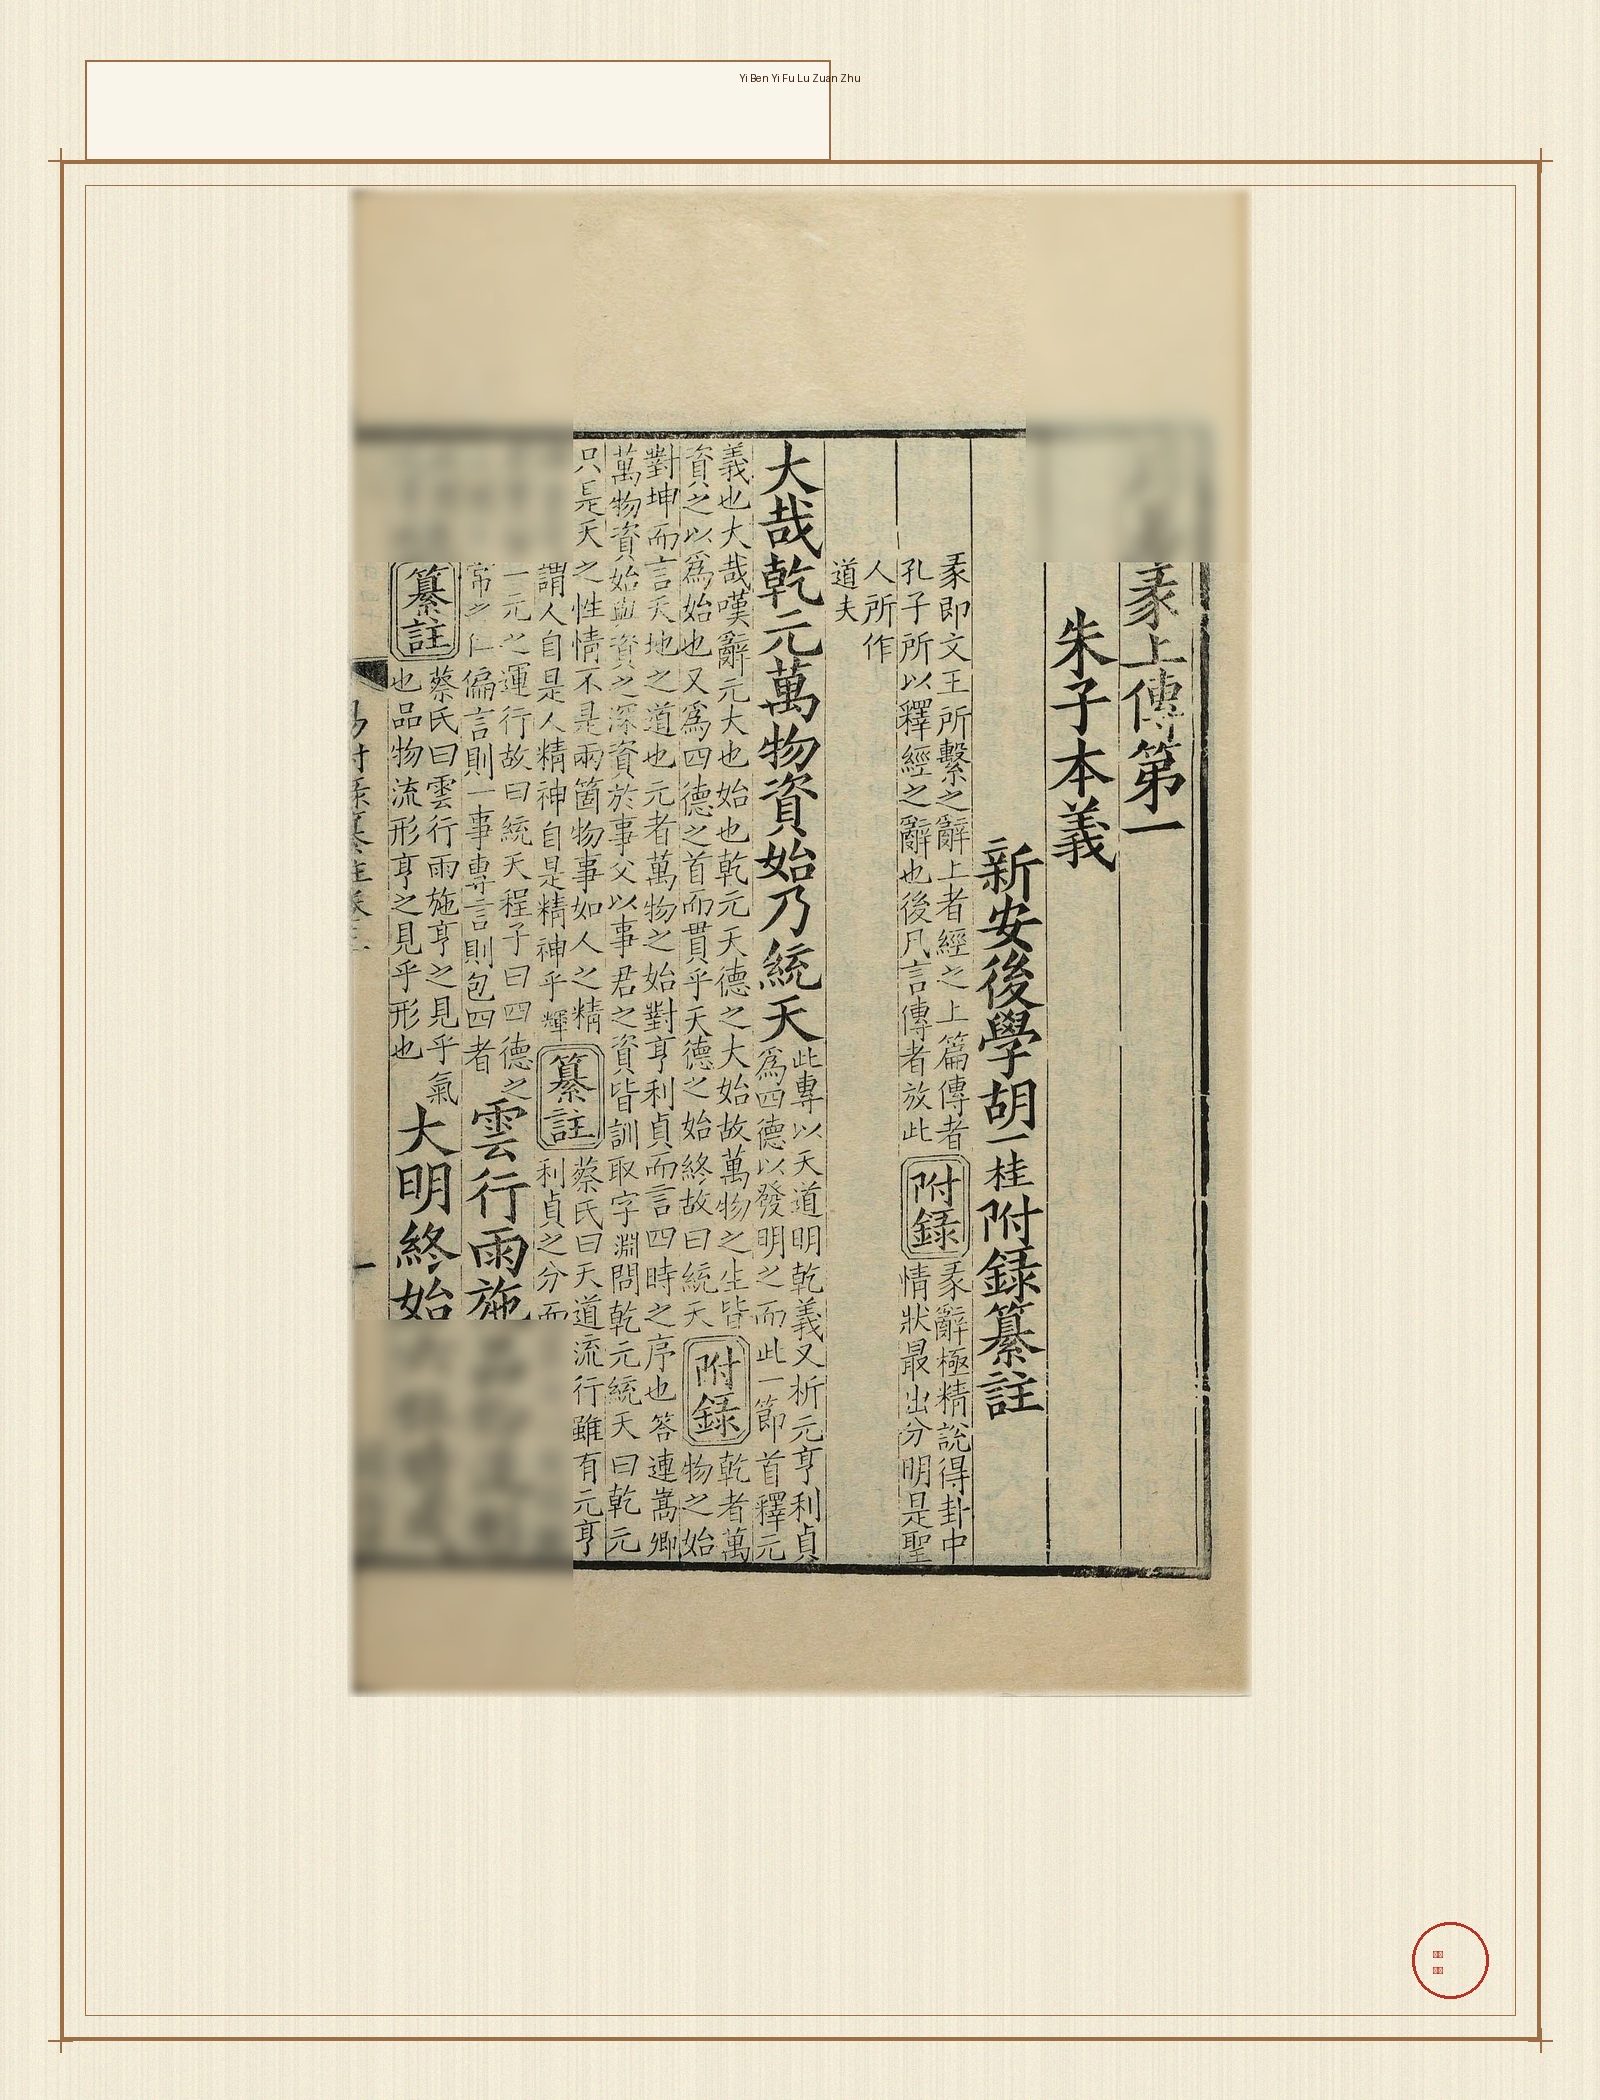 Yi Ben Yi Fu Lu Zuan Zhu
彖上傳第一
朱子本義
新安後學胡一桂附録纂註
彖即文王所繫之辭上者經之上篇傳者
孔子所以釋經之辭也後凡言傳者放此
附録
彖辭極精說得卦中
情狀最出分明是聖
人所作
道夫
大哉乾元萬物資始乃統天
此專以天道明乾義又析元亨利貞
爲四德以發明之而此一節首釋元
義也大哉嘆辭元大也始也乾元天德之大始故萬物之生皆
資之以爲始也又爲四德之首而貫乎天德之始終故曰統天
附録
乾者萬
物之始
對坤而言天地之道也元者萬物之始對亨利貞而言四時之序也答連嵩卿
萬物資始血資之深資於事父以事君之資皆訓取字淵問乾元統天曰乾元
只是天之性情不是兩箇物事如人之精
謂人自是人精神自是精神乎輝
纂註
蔡氏曰天道流行雖有元亨
利貞之分而
一元之運行故曰統天程子曰四德之
常之仁偏言則一事專言則包四者
雲行雨施
纂註
蔡氏曰雲行雨施亨之見乎氣
也品物流形亨之見乎形也
大明終始